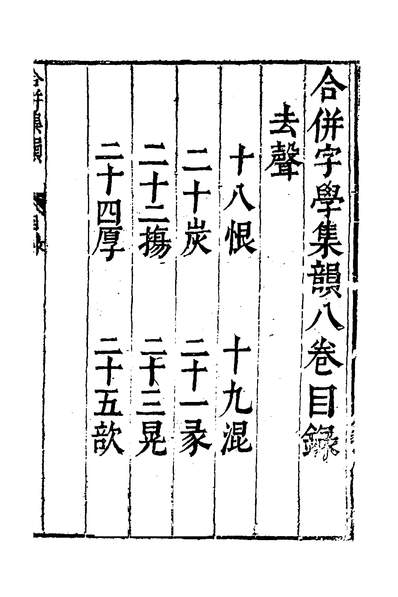 合併字學集韻八卷目錄
去聲
十八恨 十九混
二十炭 二十一彖
二十二摥 二十三晃
二十四厚 二十五
合併集韻 目錄